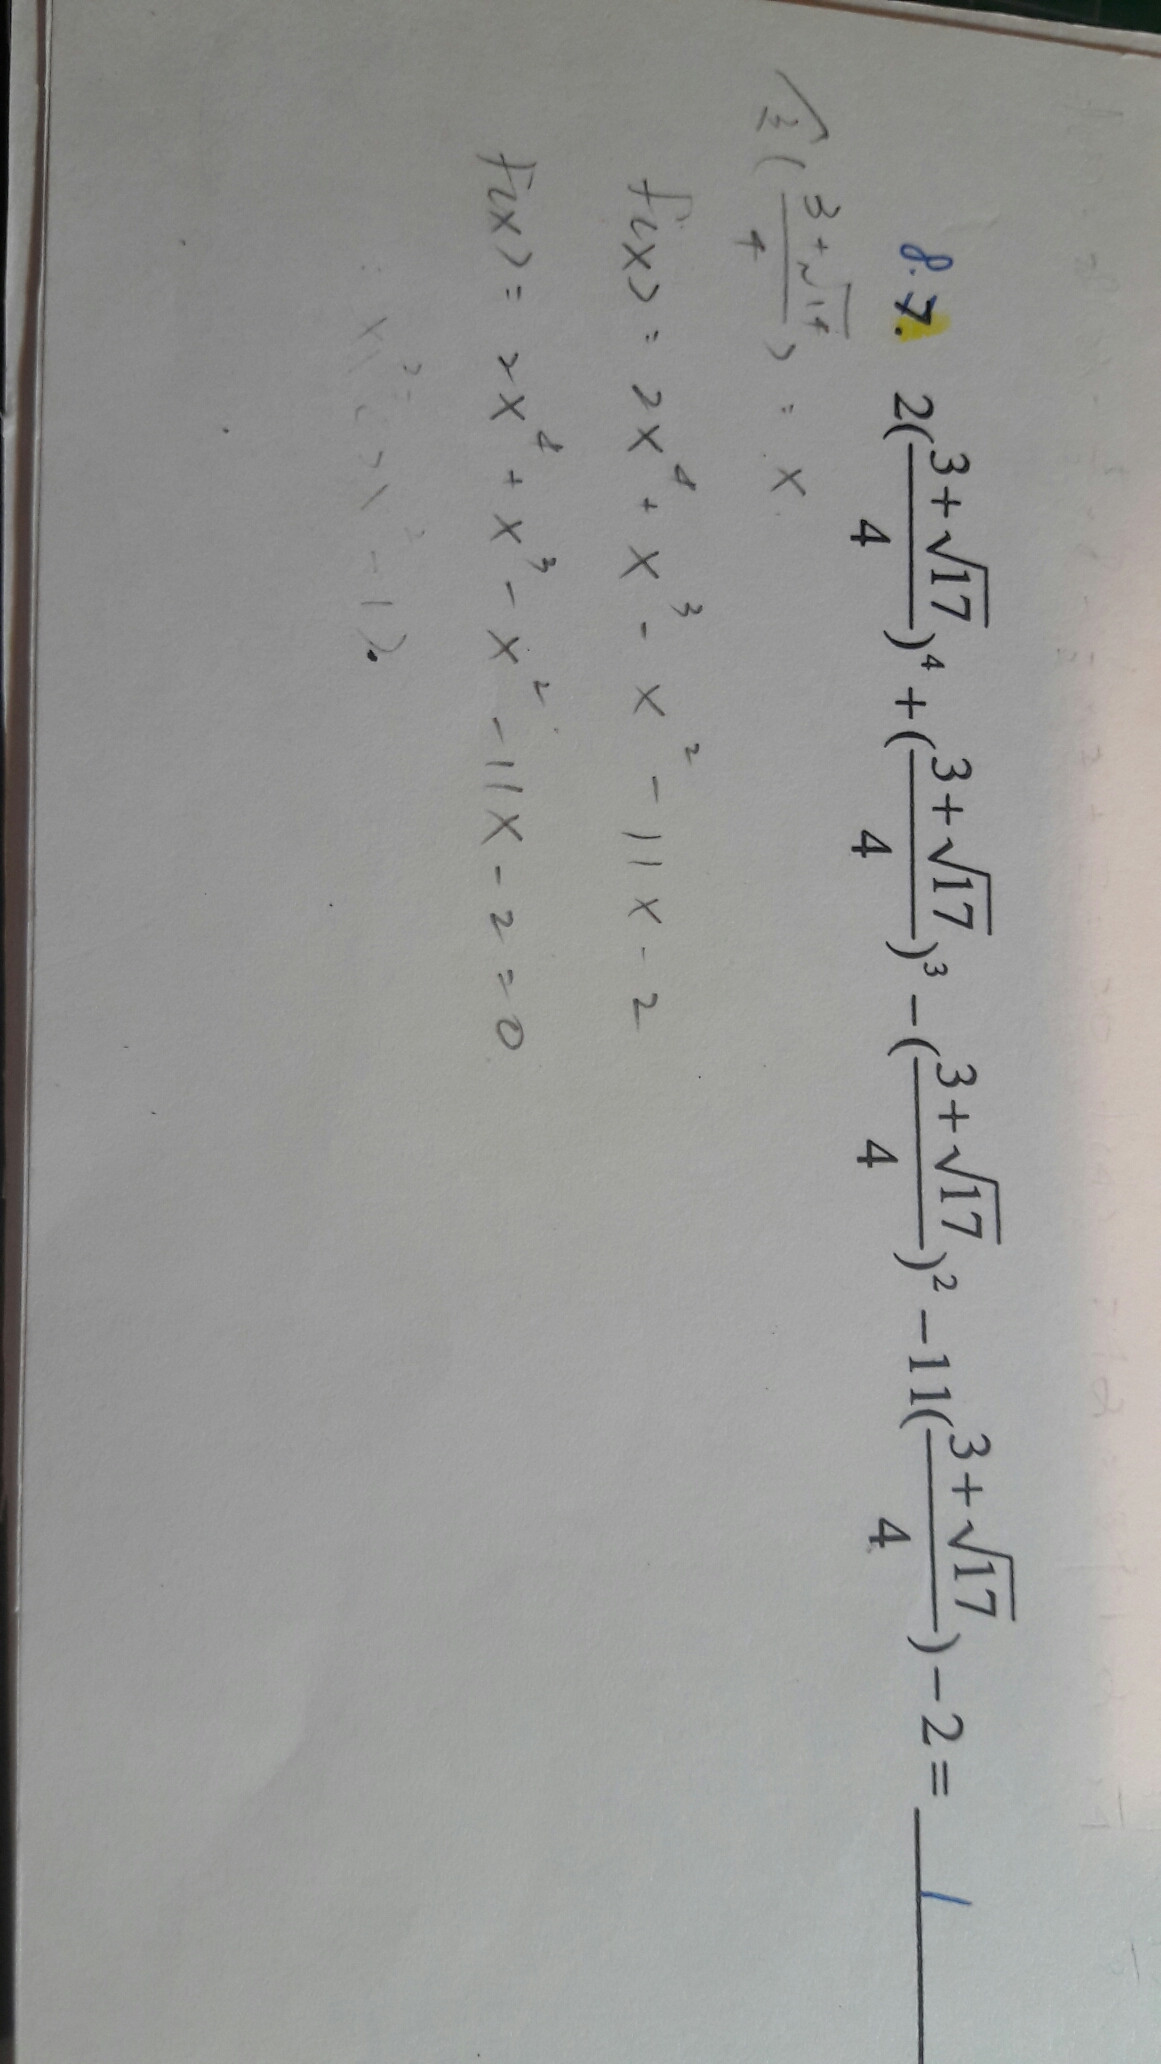 8.7. 2(\frac{3+√17}{4})^4 + (\frac{3+√17}{4})^3 - (\frac{3+√17}{4})^2 - 11(\frac{3+√17}{4}) - 2 = 1
(\frac{3+√17}{4}) = x
f(x) = 2x^4 + x^3 - x^2 - 11x - 2
f(x) = 2x^4 + x^3 - x^2 - 11x - 2 = 0